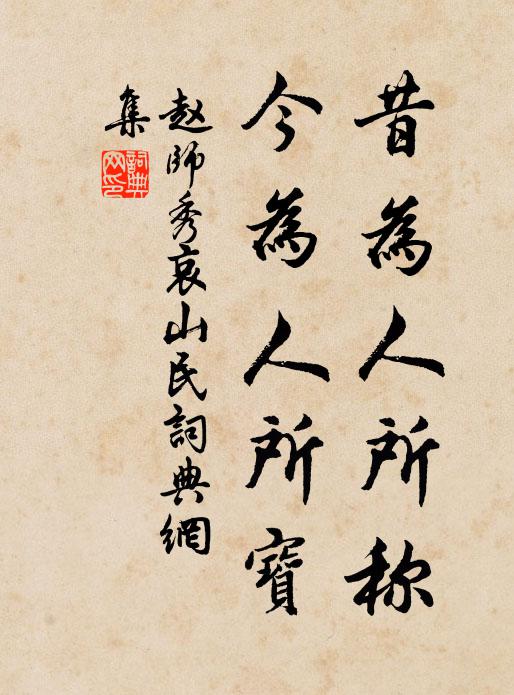 昔為人所称
今為人所寶
赵師秀哀山民詞典網
集
詞典
网印